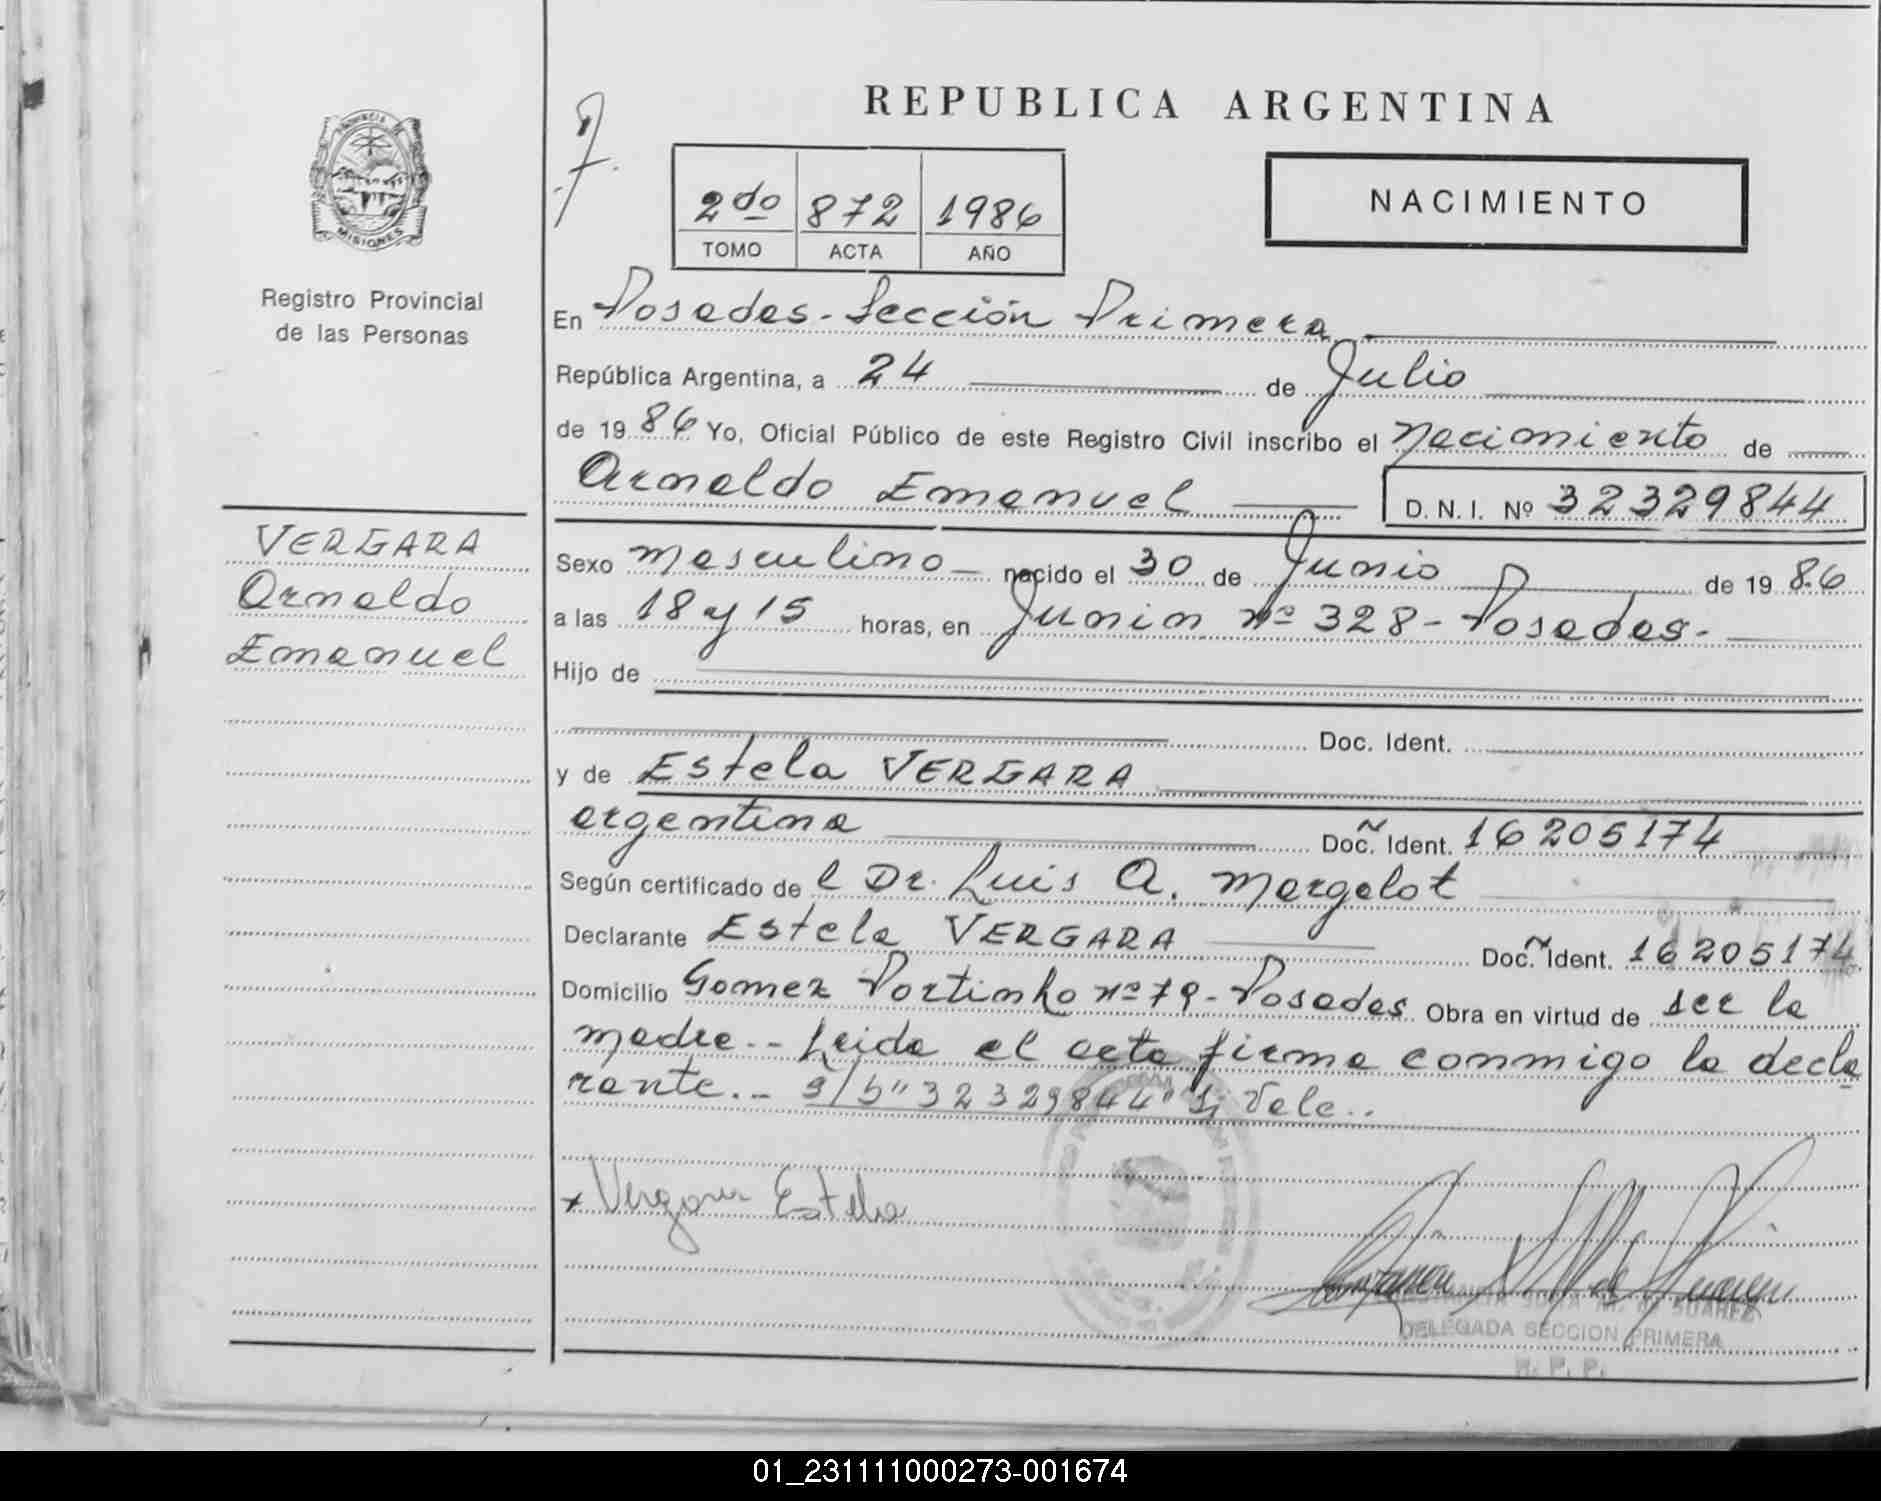 REPUBLICA ARGENTINA
PROVINCIA DE
MISIONES
Registro Provincial
de las Personas
2do 872 1986
TOMO ACTA AÑO
NACIMIENTO
En Posadas - Sección Primera
República Argentina, a 24 de Julio
de 1986 Yo, Oficial Público de este Registro Civil inscribo el Nacimiento de
Arnaldo Emanuel D. N. I. Nº 32329844
VERGARA
Arnaldo
Emanuel
Sexo masculino nacido el 30 de Junio de 1986
a las 18 y 15 horas, en Junin nº 328 - Posadas.
Hijo de
Doc. Ident.
y de Estela VERGARA
argentina Doc. Ident. 16205174
Según certificado de l Dr. Luis A. Margalot
Declarante Estela VERGARA Doc. Ident. 16205174
Domicilio Gomez Portinho nº 79 - Posadas Obra en virtud de ser la
madre.- Leida el acta firma conmigo la decla
rante.- s/b "32329844" Si Vale..
x Vergara Estela
JULIA M. de SUAREZ
DELEGADA SECCION PRIMERA
R. P. P.
01_231111000273-001674